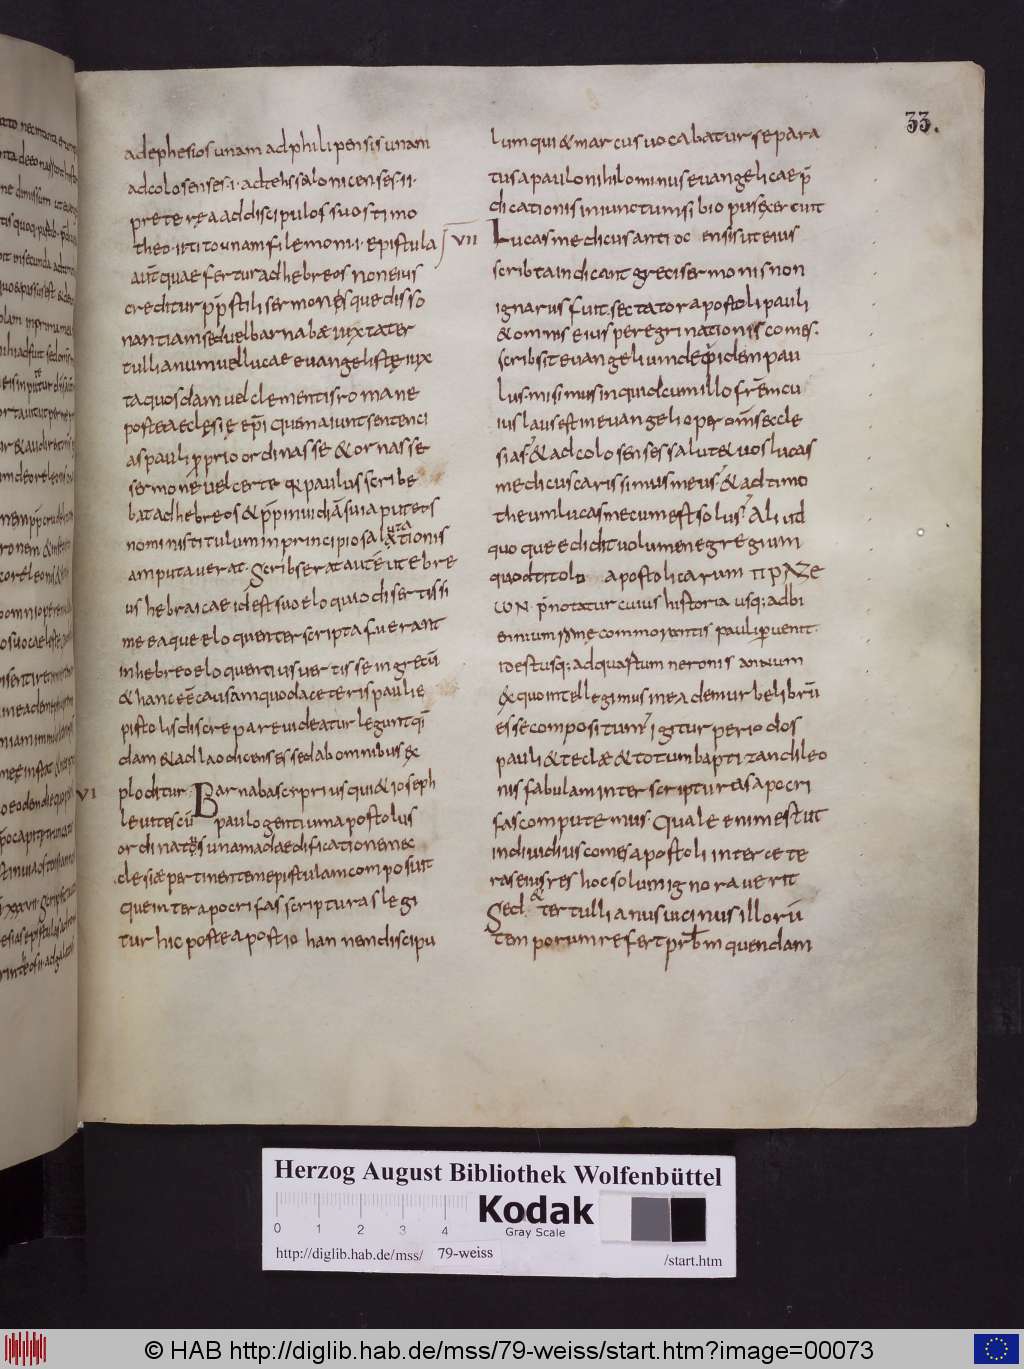 33.
ad ephesios unam ad philipensis unam
ad colosenses ·i· ad tehsalonicenses ·ii·
preterea ad discipulos suos timo
theo ·ii· tito unam filemoni ·i· epistula
aut̄ quae fertur ad hebreos non eius
creditur pp̄ stili sermonesque disso
nantiam sed vel barnabæ iuxta ter
tullianum vel lucae evangelistę iux
ta quosdam vel clementis romane
postea eclesię ep̄i quem aiunt sentenci
as pauli proprio ordinasse & ornasse
sermone vel certe quia paulus scribe
bat ad hebreos & pp̄ invidiā sui aput eos
nominis titulum in principio salutationis
amputaverat. Scribserat autē ut ebre
us hebraicae id est suo eloquio disertissi
me ea que eloquenter scripta fuerant
in hebreo eloquentius vertisse in gretū
& hanc eē causam quod a ceteris pauli e
pistolis discrepare videatur legunt q̄
dam & ad laodicenses sed ab omnibus ex
VI
ploditur. Barnabas ciprius qui & ioseph
levites cū paulo gentium apostolus
ordinatus unam ad aedificationem ec
clesiæ pertinentem epistulam composuit
que inter apocrifas scripturas legi
tur hic postea postio hannen discipu
lum qui & marcus vocabatur separa
tus a paulo nihilominus evangelicae p̄
dicationis iniunctum sibi opus exercuit
VII
Lucas medicus antioc ensis ut eius
scribta indicant greci sermonis non
ignarus fuit. sectator apostoli pauli
& omnis eius peregrinationis comes.
scribsit evangelium de quo idem pau
lus. misimus inquid cum illo frēm cu
ius laus est in evangelio per omēs eccle
sias. & ad colosenses salut& vos lucas
medicus carissimus meus. & ad timo
theum lucas mecum est solus. Aliud
quoque edidit volumen egregium
quod titolo apostolicarum ΠΡΑΖΕ
ωΝ p̄notatur cuius historia usq; ad bi
ennium rome commorantis pauli pervenit.
id est usq; ad quartum neronis annum
Ex quo intellegimus in eadem urbe librū
esse compositum. igitur periodos
pauli & teclæ & totum baptizandi leo
nis fabulam inter scripturas apocri
fas computemus. Quale enim est ut
individius comes apostoli inter cete
ras eius res hoc solum ignoraverit
Sed & tertullianus vicinus illorū
temporum refert prbm quendam
Herzog August Bibliothek Wolfenbüttel
0 1 2 3 4
Kodak
Gray Scale
http://diglib.hab.de/mss/ 79-weiss /start.htm
© HAB http://diglib.hab.de/mss/79-weiss/start.htm?image=00073